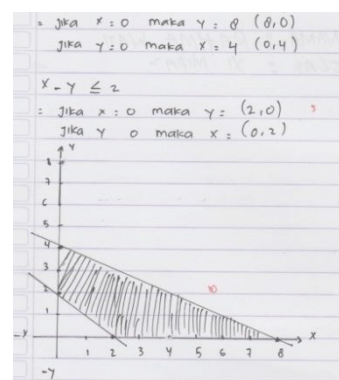 = Jika x = 0 maka y = 8 (8,0)
Jika y = 0 maka x = 4 (0,4)
x - y ≤ 2
= Jika x = 0 maka y = (2,0) 5
Jika y 0 maka x = (0,2)
y
8
7
6
5
4
3
2
1
10
-x 1 2 3 4 5 6 7 8 x
-y